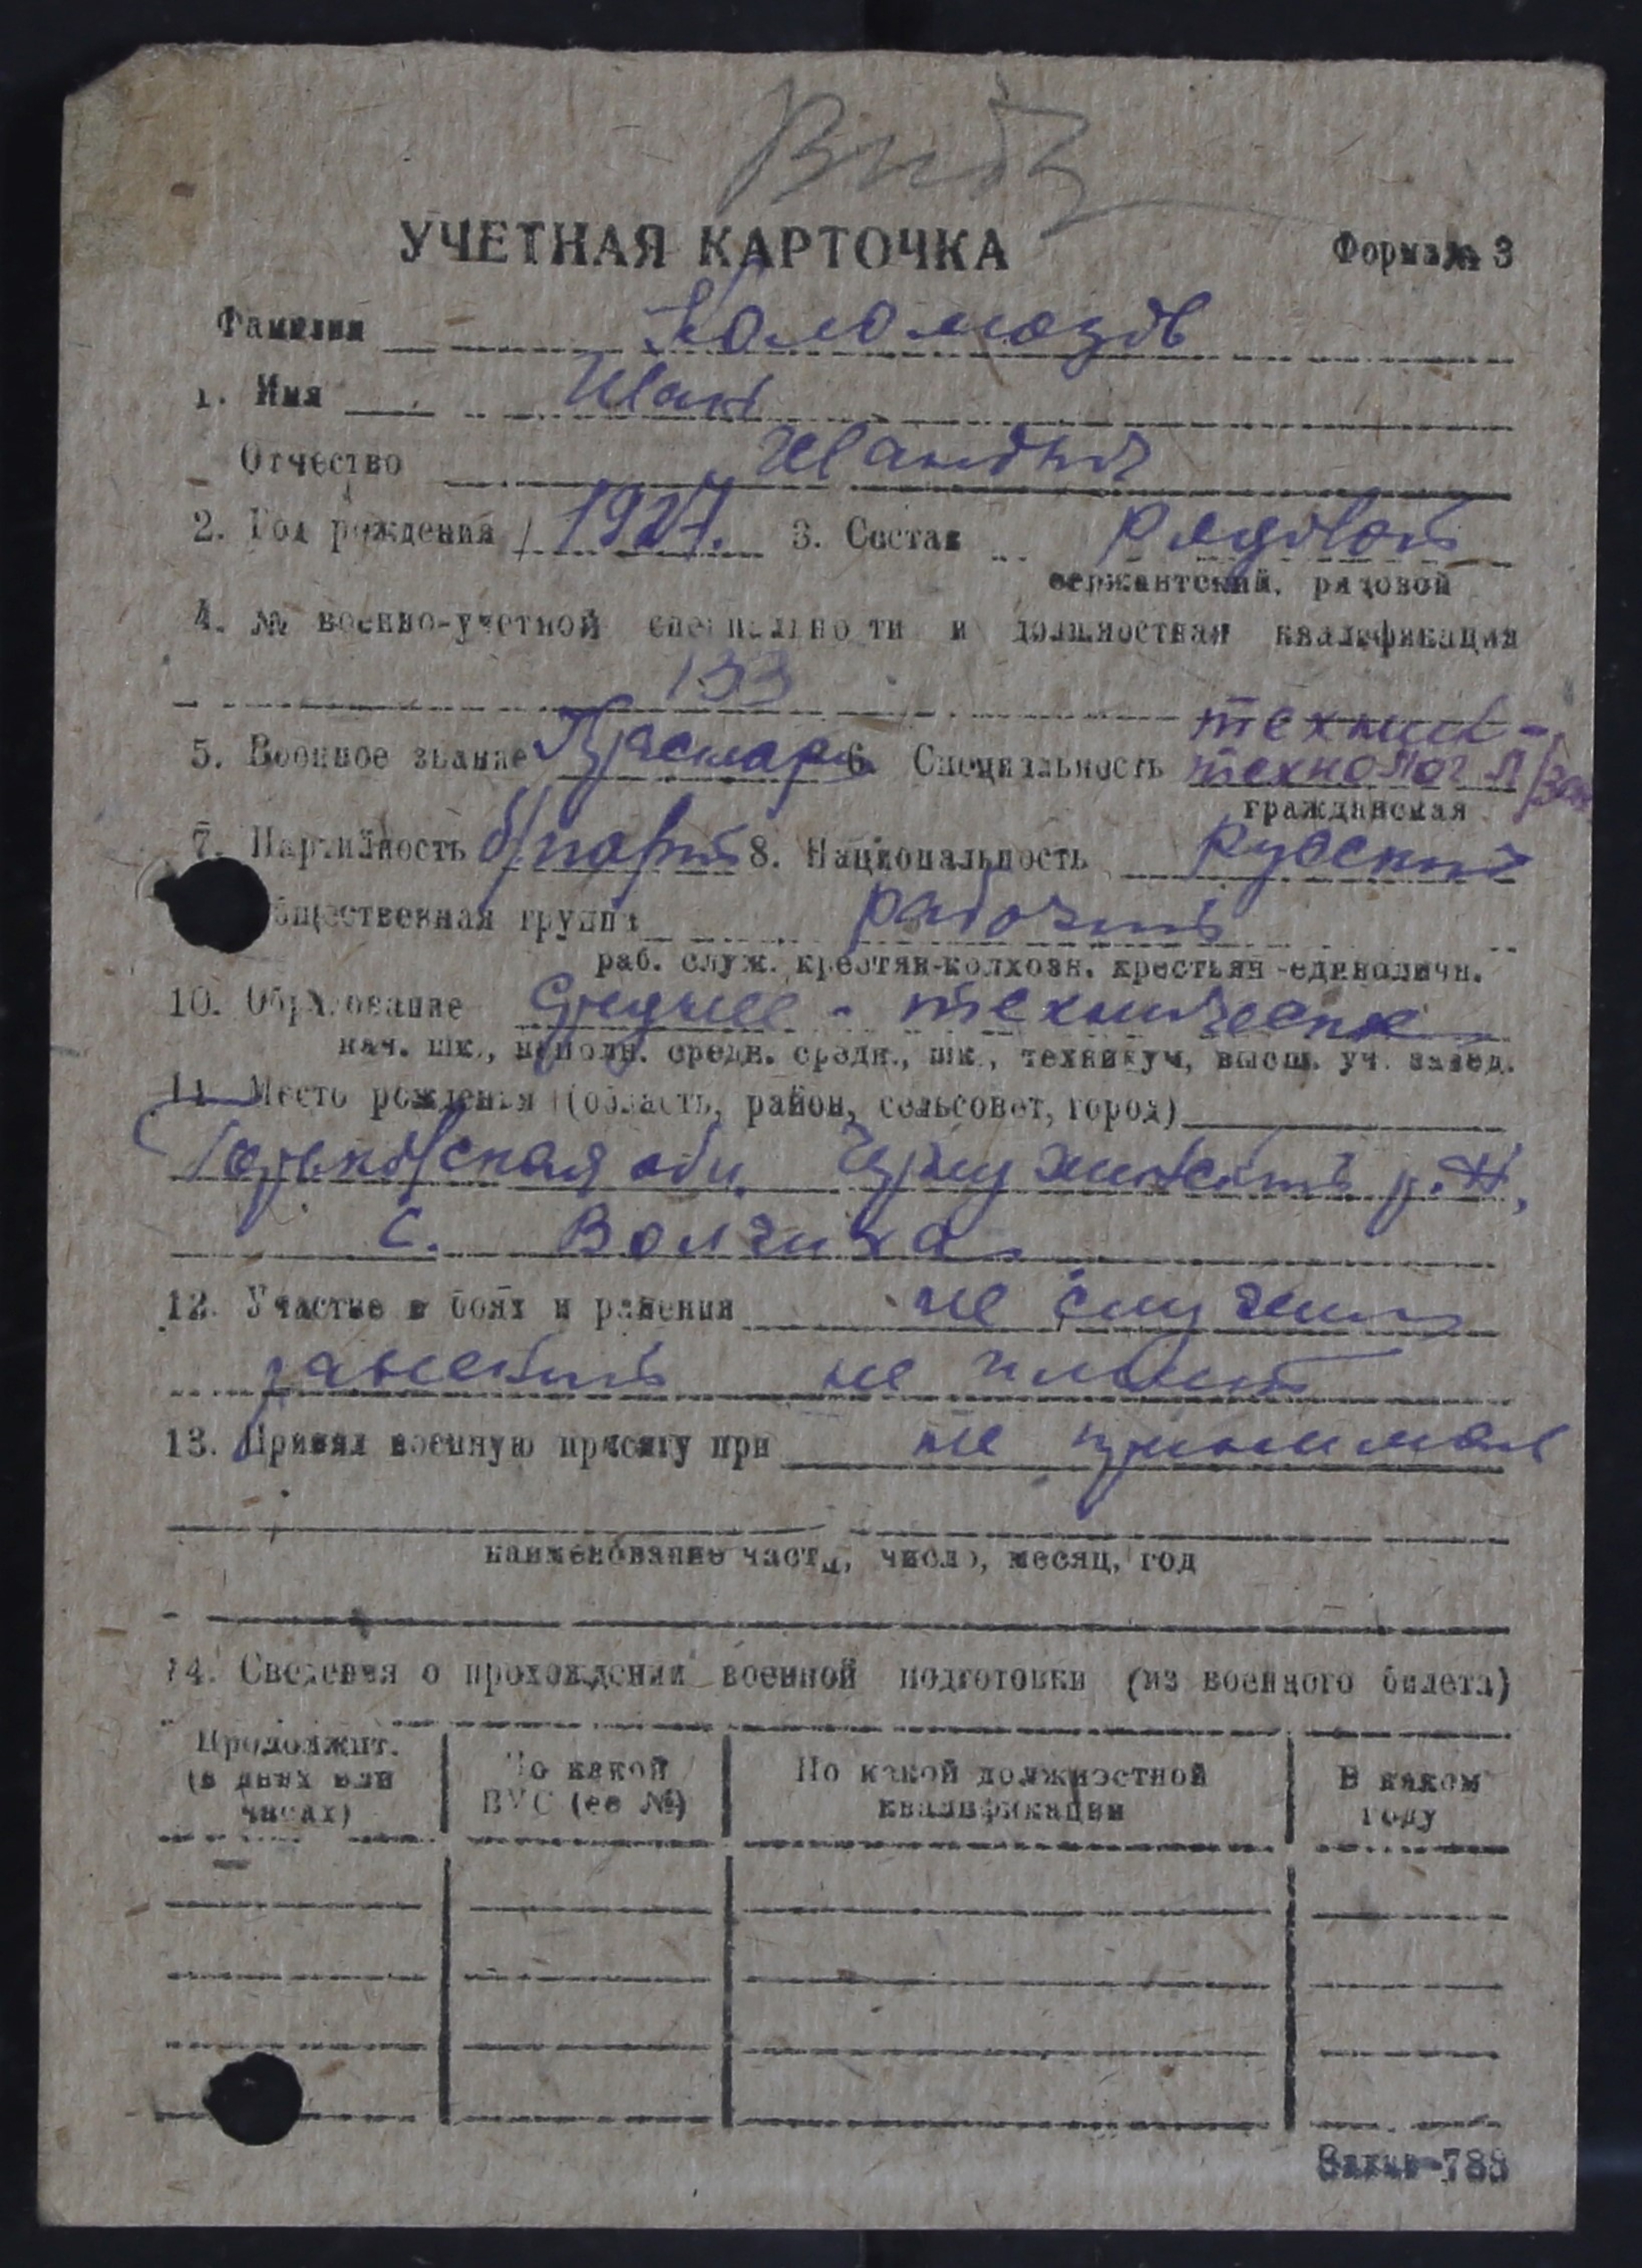 УЧЕТНАЯ КАРТОЧКА Форма № 3
Фамилия Коломозов
1. Имя Иван
Отчество Иванович
2. Год рождения 1927. 3. Состав рядовой
сержантский, рядовой
4. № военно-учетной специальности и должностная квалификация
133
5. Военное звание 6. Специальность техник-
технолог
гражданская
7. Партийность б/парт 8. Национальность Русский
Общественная группа рабочий
раб. служ. крестян-колхозн. крестьян-единоличн.
10. Образование Среднее - техническое
нач. шк., неполн. средн. средн., шк., техникум, высш. уч. завед.
11 Место рождения (область, район, сельсовет, город)
Горьковская обл. р.н,
с. Волчиха
12. Участие в боях и ранения не служил
ранений не имеет
13. Принял военную присягу при не принимал
наименование части, число, месяц, год
14. Сведения о прохождении военной подготовки (из военного билета)
Продолжит. (в днях или часах) По какой ВУС (ее №) По какой должностной квалификации В каком году
Заказ-788